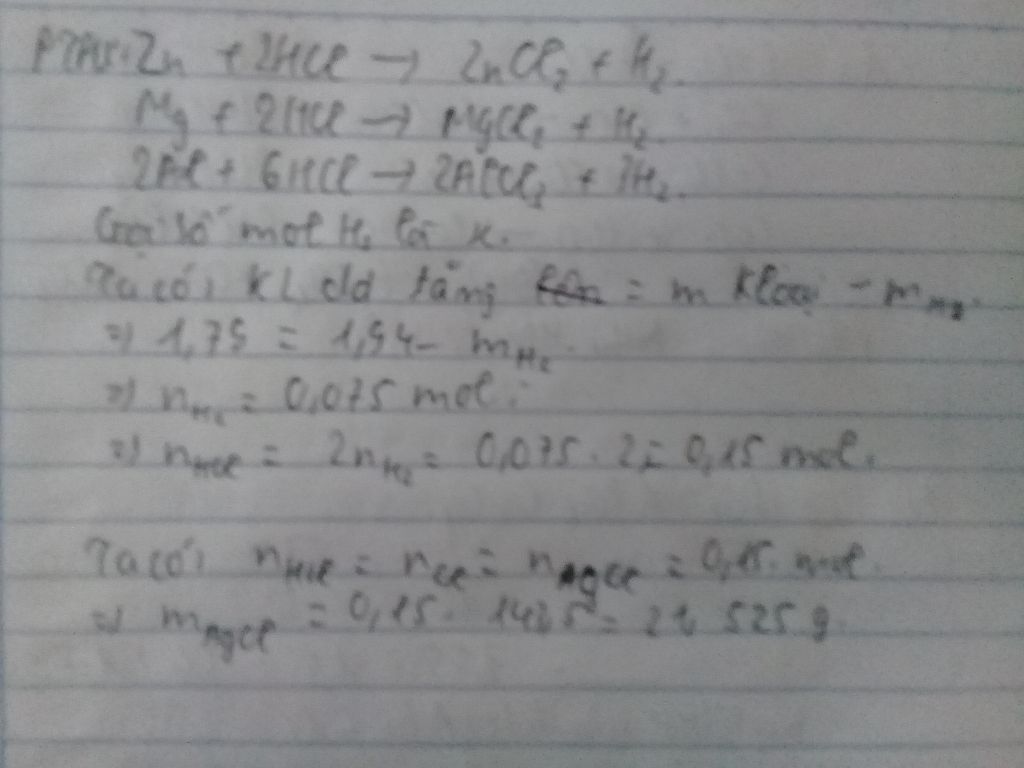 PTPƯ: Zn + 2HCl → ZnCl₂ + H₂.
Mg + 2HCl → MgCl₂ + H₂.
2Al + 6HCl → 2AlCl₃ + 3H₂.
Gọi số mol H₂ là x.
Ta có: KL dd tăng = m kloại - m H₂.
=> 1,75 = 1,94 - m H₂.
=> n H₂ = 0,075 mol.
=> n HCl = 2n H₂ = 0,075 . 2 = 0,15 mol.
Ta có: n HCl = n Cl = n AgCl = 0,15 mol.
=> m AgCl = 0,15 . 143,5 = 21,525 g